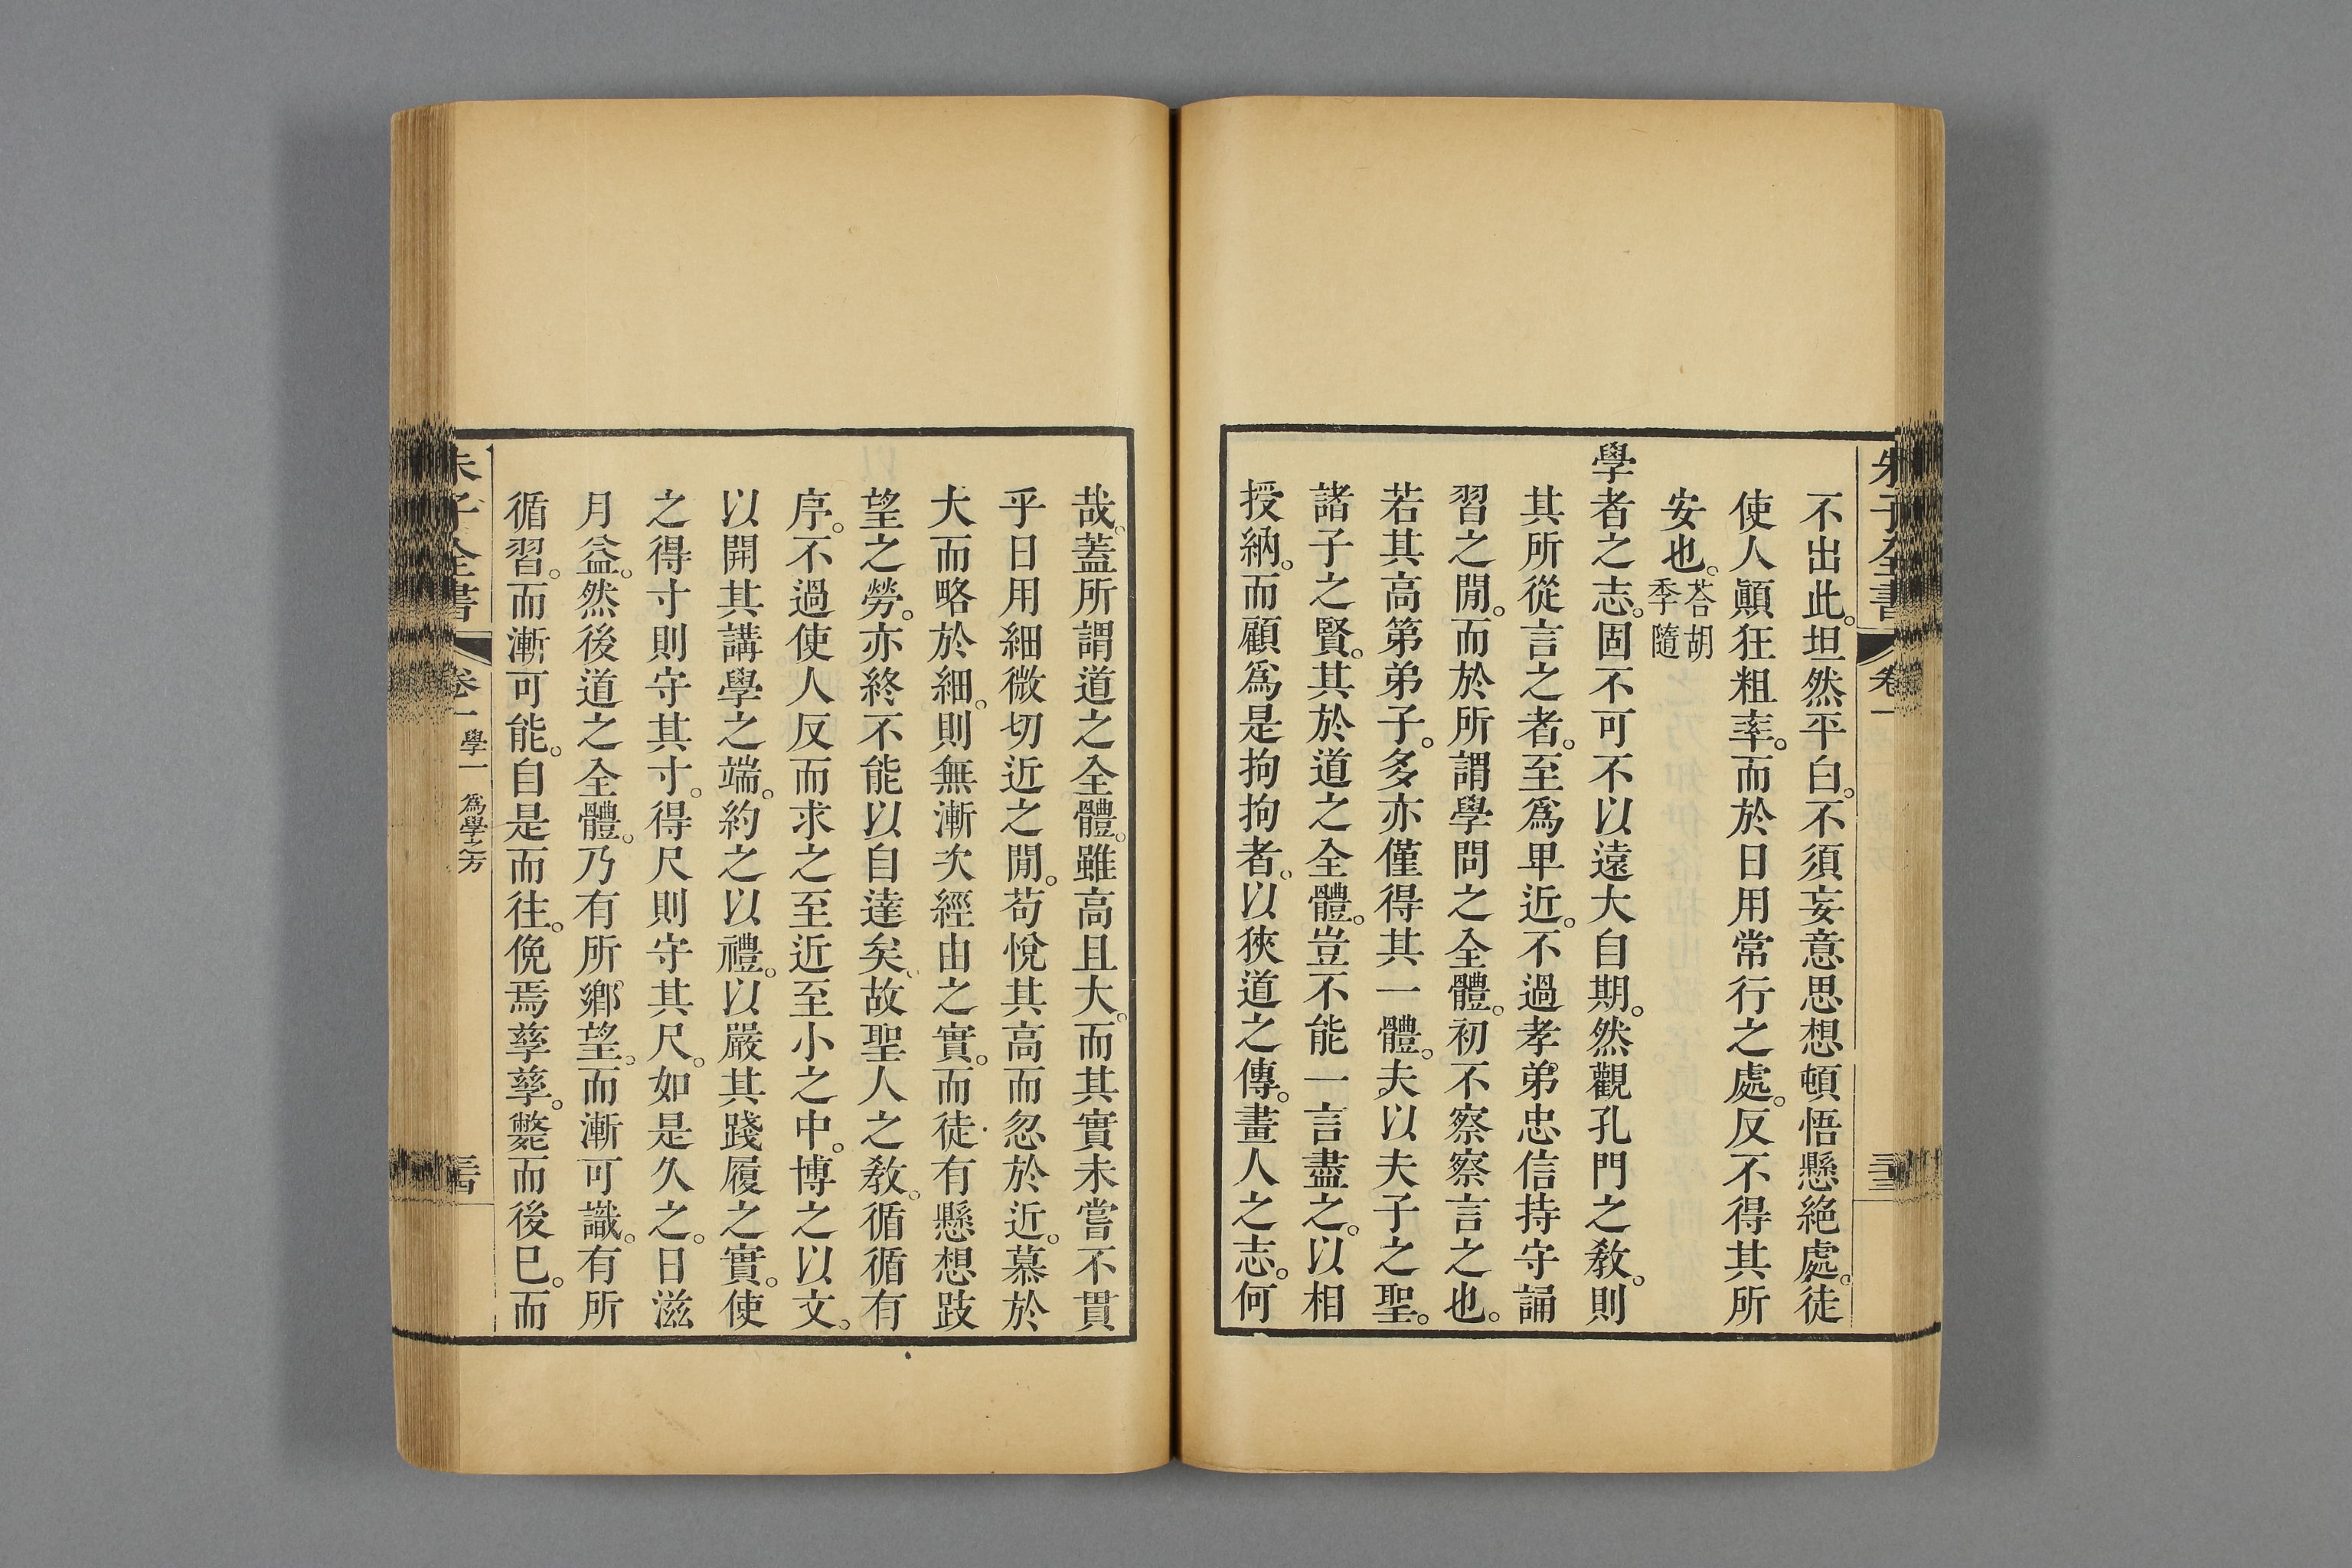 朱子全書 卷一
三三
不出此。坦然平白。不須妄意思想頓悟懸絶處。徒
使人顚狂粗率。而於日用常行之處。反不得其所
安也。荅胡季隨
學者之志。固不可不以遠大自期。然觀孔門之敎。則
其所從言之者。至爲𤰞近。不過孝弟忠信持守誦
習之閒。而於所謂學問之全體。初不察察言之也。
若其高第弟子。多亦僅得其一體。夫以夫子之聖。
諸子之賢。其於道之全體。豈不能一言盡之。以相
授納。而顧爲是拘拘者。以狹道之傳。畫人之志。何
哉。蓋所謂道之全體。雖高且大。而其實未嘗不貫
乎日用細微切近之閒。苟悅其高而忽於近。慕於
大而略於細。則無漸次經由之實。而徒有懸想跂
望之勞。亦終不能以自達矣。故聖人之敎。循循有
序。不過使人反而求之至近至小之中。博之以文。
以開其講學之端。約之以禮。以嚴其踐履之實。使
之得寸則守其寸。得尺則守其尺。如是久之。日滋
月益。然後道之全體。乃有所鄕望。而漸可識。有所
循習。而漸可能。自是而往。俛焉孳孳。斃而後已。而
朱子全書 卷一 學一 爲學之方